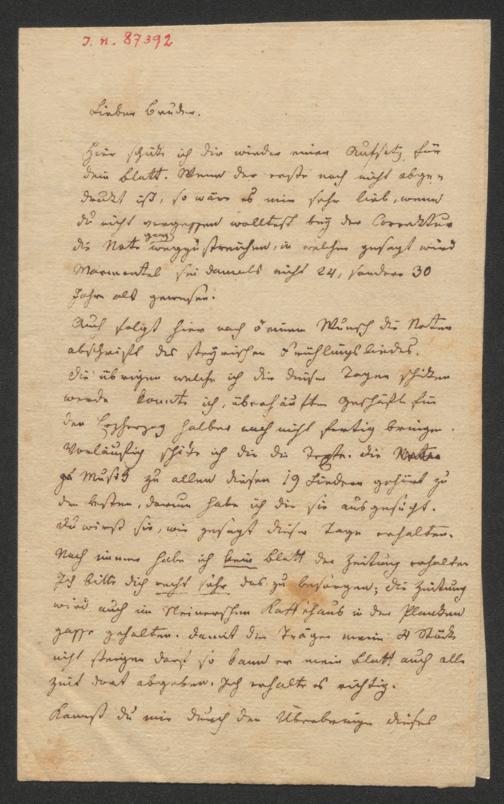 J. n. 87392
Lieber Bruder.
Hier schicke ich dir wieder einen Aufsatz für
dein Blatt. Wenn der erste noch nicht abge-
druckt ist, so wäre es mir sehr lieb, wenn
du nicht vergessen wolltest bey der Correktur
die Note ganz wegzustreichen, in welcher gesagt wird
Marmontel sei damals nicht 24, sondern 30
Jahre alt gewesen.
Auch folgt hier nach deinem Wunsch die Noten
abschrift des steyrischen Frühlingsliedes.
Die übrigen welche ich dir dieser Tagen schicken
werde konnte ich, überhäufter Geschäfte für
den Erzherzog halber noch nicht fertig bringen.
Vorläufig schicke ich dir die Texte. Die
Musik zu allen diesen 19 Liedern gehört zu
den besten, darum habe ich dir sie ausgesucht.
Du wirst sie, wie gesagt dieser Tage erhalten.
Noch immer habe ich kein Blatt der Zeitung erhalten
Ich bitte dich recht sehr das zu besorgen; die Zeitung
wird auch im Neinerschen Kaffehaus in der Planken
gasse gehalten. Damit der Träger meine 4 Stöcke
nicht steigen darf so kann er mein Blatt auch alle
zeit dort abgeben. Ich erhalte es richtig.
Kannst du mir durch den Überbringer dieses